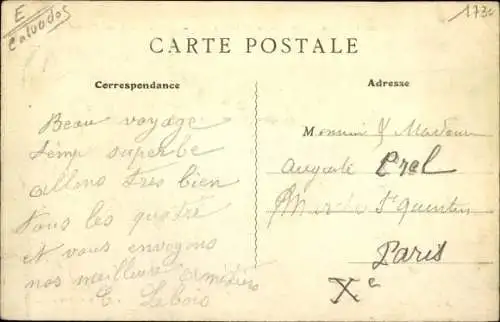 E
Calvados
173
CARTE POSTALE
Correspondance
Adresse
Beau voyage
temp superbe
allons tres bien
tous les quatre
et vous envoyons
nos meilleure amitiers
E.
Monsieur & Madame
Auguste Prel
St Quentin
Paris
Xe